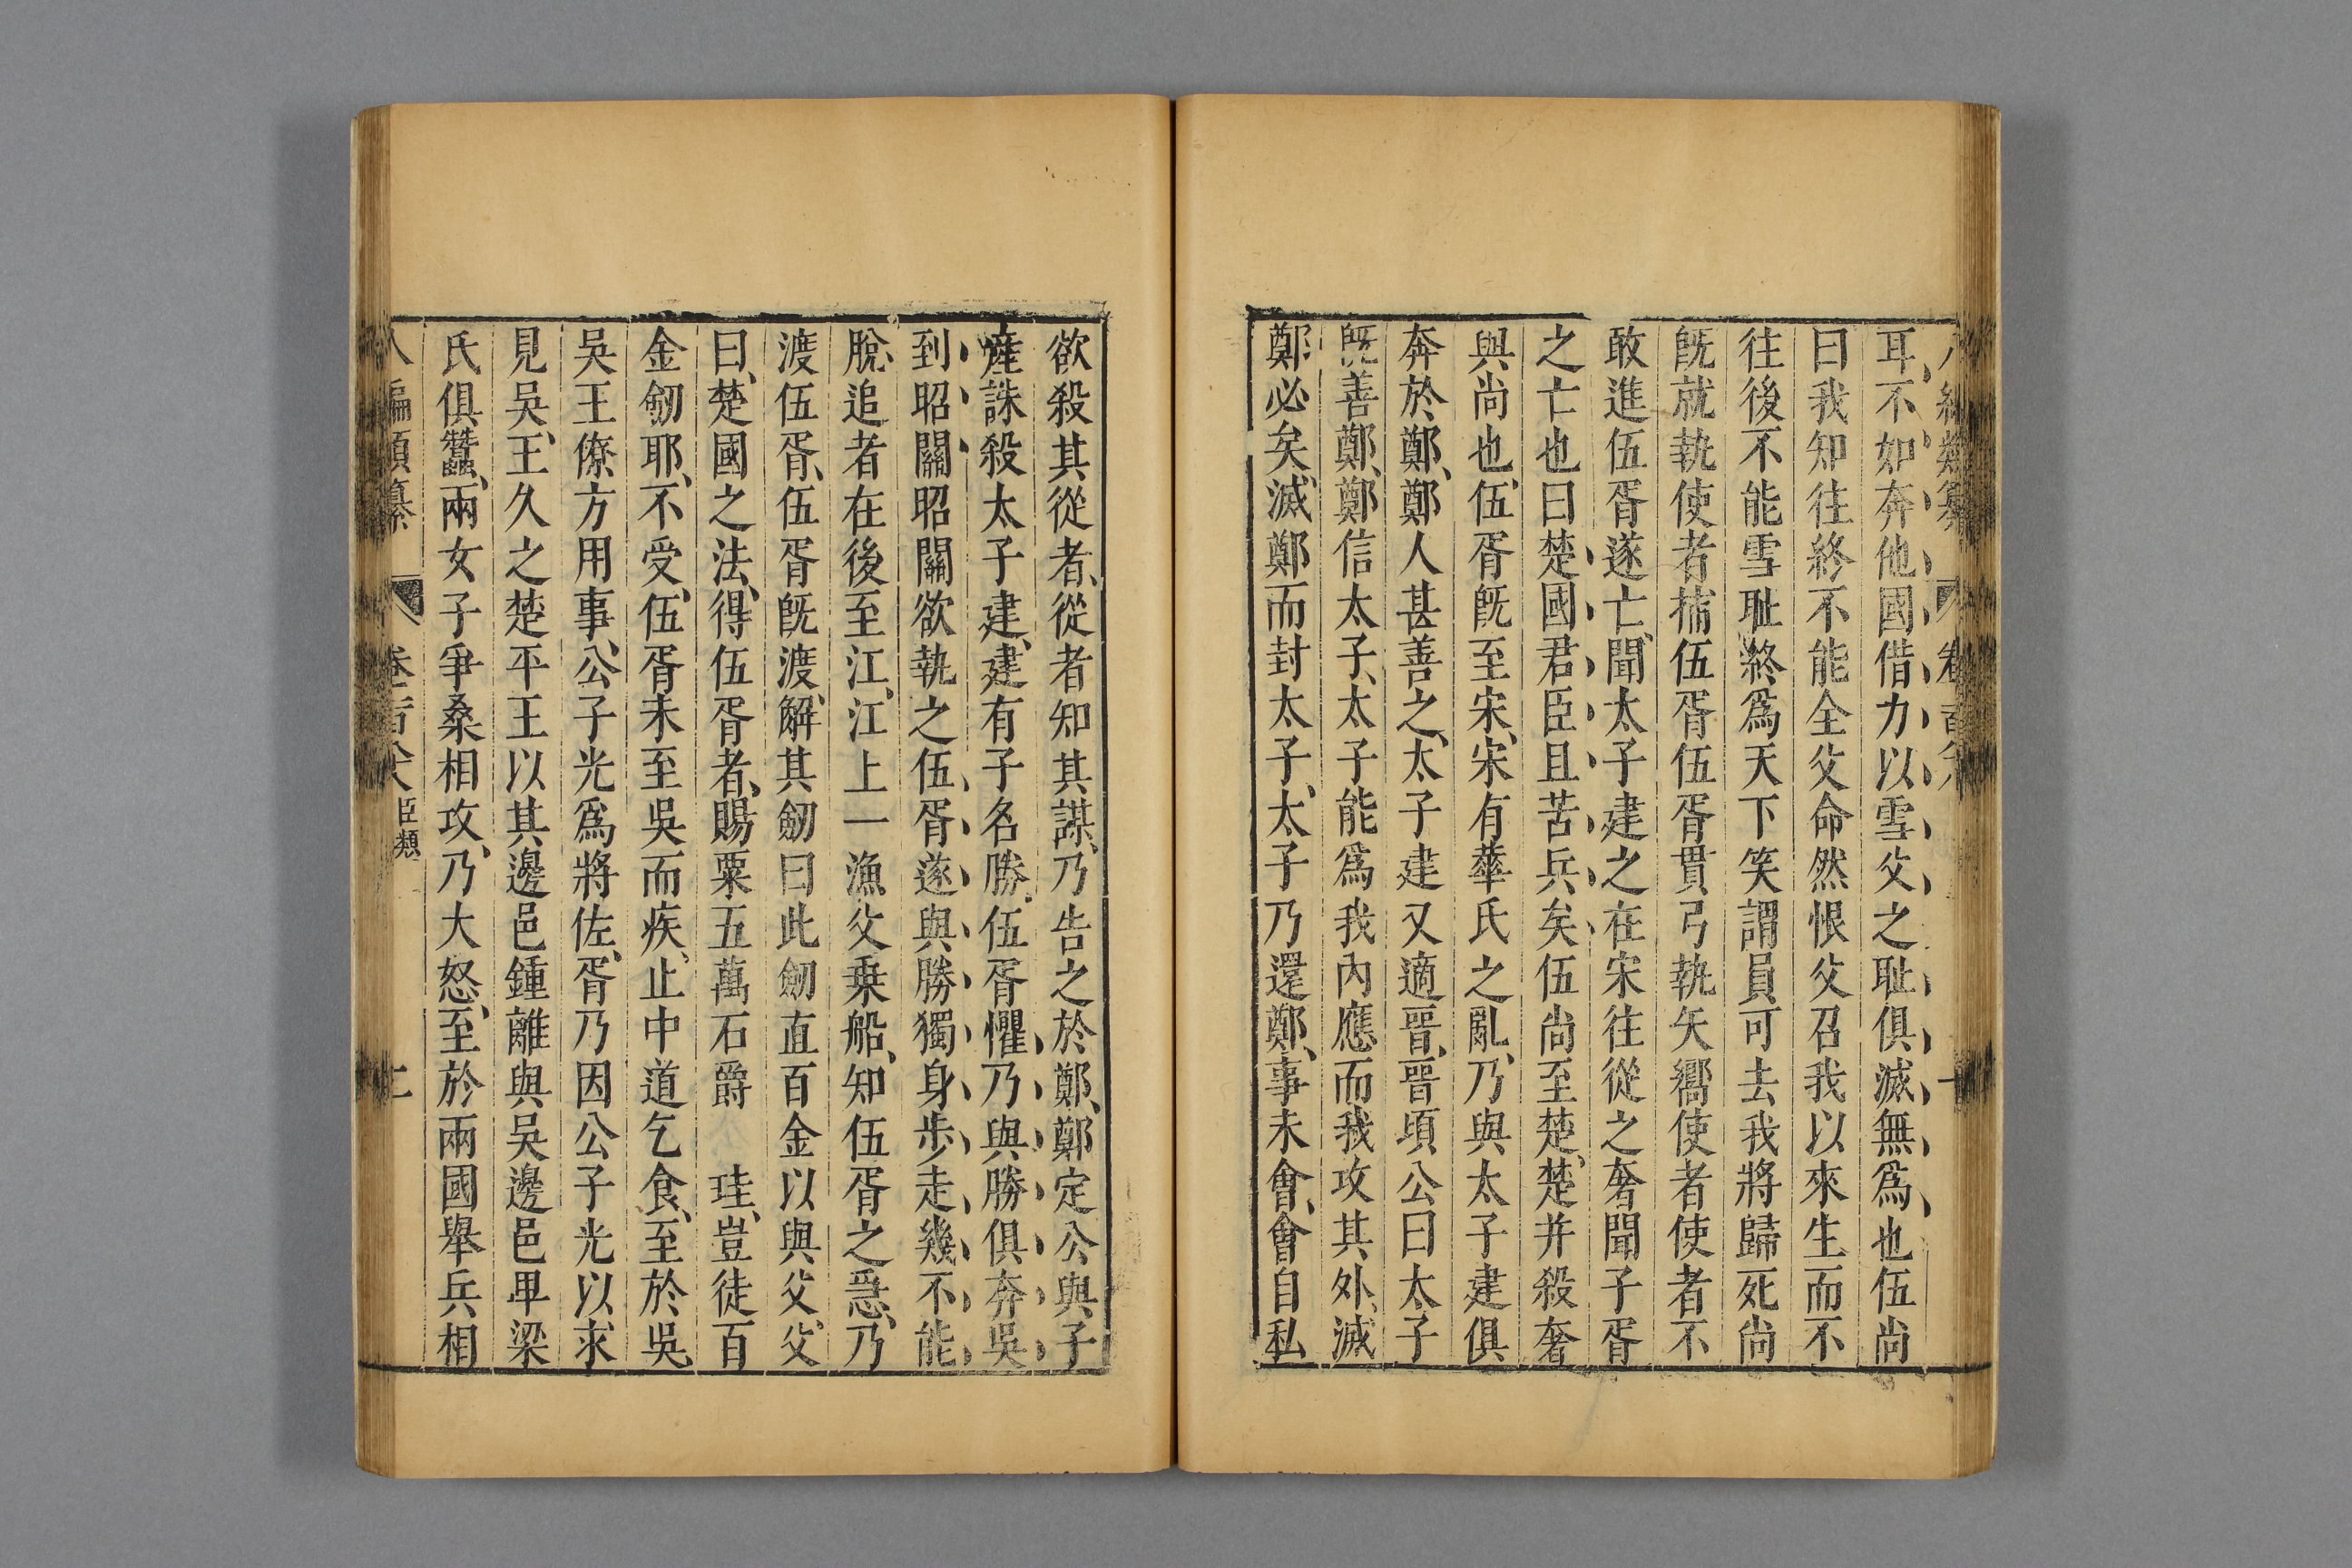 耳、不如奔他國借力以雪父之耻俱滅無爲也伍尚
曰我知往終不能全父命然恨父召我以來生而不
往後不能雪耻終爲天下笑謂員可去我將歸死尚
旣就執使者捕伍胥伍胥貫弓執矢嚮使者使者不
敢進伍胥遂亡、聞太子建之在宋往從之奢聞子胥
之亡也曰楚國君臣且苦兵矣伍尚至楚、楚并殺奢
與尚也、伍胥旣至宋、宋有華氏之亂、乃與太子建俱
奔於鄭、鄭人甚善之、太子建又適晉、晉頃公曰太子
旣善鄭、鄭信太子、太子能爲我內應而我攻其外、滅
鄭必矣、滅鄭而封太子、太子乃還鄭、事未會、會自私
欲殺其從者、從者知其謀、乃告之於鄭、鄭定公與子
產誅殺太子建、建有子名勝、伍胥懼乃與勝俱奔吳
到昭關昭關欲執之伍胥遂與勝獨身步走幾不能
脫、追者在後至江、江上一漁父乗船、知伍胥之急、乃
渡伍胥、伍胥旣渡、解其劒曰此劒直百金以與父、父
曰、楚國之法、得伍胥者、賜粟五萬石爵 珪、豈徒百
金劒耶、不受、伍胥未至吳而疾、止中道乞食、至於吳、
吳王僚方用事、公子光爲將佐、胥乃因公子光以求
見吳王、久之楚平王以其邊邑鍾離與吳邊邑卑梁
氏俱蠶、兩女子爭桑相攻、乃大怒、至於兩國舉兵相
八編類纂 卷一百八 臣類